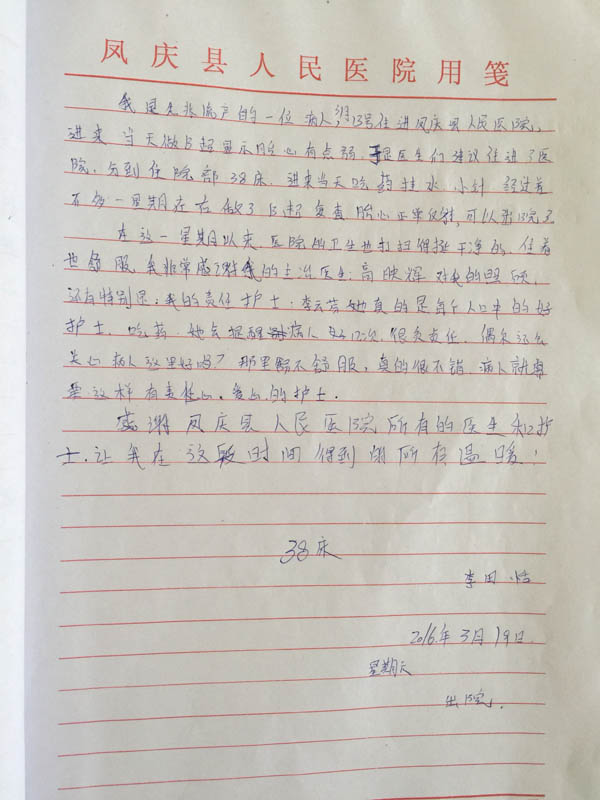 凤庆县人民医院用笺
我是先兆流产的一位病人,3月13号住进凤庆县人民医院,
进来当天做B超显示胎心有点弱,于是医生们建议住进了医
院,分到住院部38床,进来当天吃药挂水小针经过差
不多一星期左右做了B超复查胎心正常反射,可以出院了
在这一星期以来医院的卫生也打扫得挺干净的,住着
也舒服,我非常感谢我的主治医生:高映辉对我的照顾,
还有特别是:我的责任护士:李云芸她真的是每个人口中的好
护士,吃药,她会提醒病人好几次,很负责任,偶尔还会
关心病人这里好吗?那里舒不舒服,真的很不错,病人就需
要这样有责任心,爱心的护士.
感谢凤庆县人民医院所有的医生和护
士,让我在这段时间得到所有温暖!
38床
李田
2016年3月19日
星期六
出院,